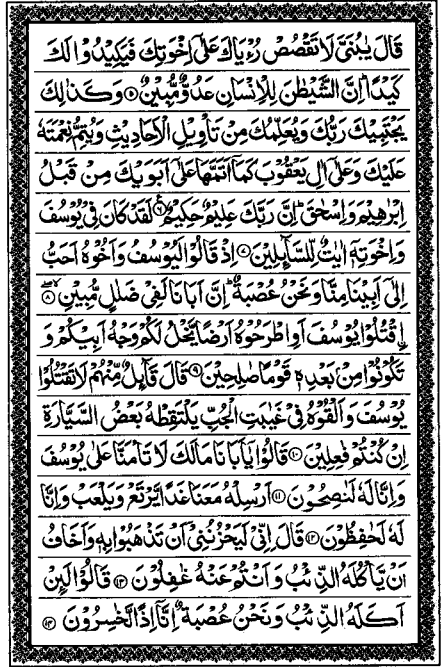 قَالَ يٰبُنَيَّ لَا تَقْصُصْ رُءْيَاكَ عَلٰٓى اِخْوَتِكَ فَيَكِيْدُوْا لَكَ
كَيْدًا ؕ اِنَّ الشَّيْطٰنَ لِلْاِنْسَانِ عَدُوٌّ مُّبِيْنٌ ﴿۵﴾ وَ كَذٰلِكَ
يَجْتَبِيْكَ رَبُّكَ وَيُعَلِّمُكَ مِنْ تَاْوِيْلِ الْاَحَادِيْثِ وَيُتِمُّ نِعْمَتَهٗ
عَلَيْكَ وَعَلٰٓى اٰلِ يَعْقُوْبَ كَمَاۤ اَتَمَّهَا عَلٰٓى اَبَوَيْكَ مِنْ قَبْلُ
اِبْرٰهِيْمَ وَ اِسْحٰقَ ؕ اِنَّ رَبَّكَ عَلِيْمٌ حَكِيْمٌ ﴿۶﴾ لَقَدْ كَانَ فِيْ يُوْسُفَ
وَ اِخْوَتِهٖۤ اٰيٰتٌ لِّلسَّآىِٕلِيْنَ ﴿۷﴾ اِذْ قَالُوْا لَيُوْسُفُ وَ اَخُوْهُ اَحَبُّ
اِلٰٓى اَبِيْنَا مِنَّا وَنَحْنُ عُصْبَةٌ ؕ اِنَّ اَبَانَا لَفِيْ ضَلٰلٍ مُّبِيْنِ ﴿۸﴾
اِ۟قْتُلُوْا يُوْسُفَ اَوِ اطْرَحُوْهُ اَرْضًا يَّخْلُ لَكُمْ وَجْهُ اَبِيْكُمْ وَ
تَكُوْنُوْا مِنْۢ بَعْدِهٖ قَوْمًا صٰلِحِيْنَ ﴿۹﴾ قَالَ قَآىِٕلٌ مِّنْهُمْ لَا تَقْتُلُوْا
يُوْسُفَ وَ اَلْقُوْهُ فِيْ غَيٰبَتِ الْجُبِّ يَلْتَقِطْهُ بَعْضُ السَّيَّارَةِ
اِنْ كُنْتُمْ فٰعِلِيْنَ ﴿۱۰﴾ قَالُوْا يٰۤاَبَانَا مَالَكَ لَا تَاْمَنَّا عَلٰى يُوْسُفَ
وَ اِنَّا لَهٗ لَنٰصِحُوْنَ ﴿۱۱﴾ اَرْسِلْهُ مَعَنَا غَدًا يَّرْتَعْ وَيَلْعَبْ وَ اِنَّا
لَهٗ لَحٰفِظُوْنَ ﴿۱۲﴾ قَالَ اِنِّيْ لَيَحْزُنُنِيْۤ اَنْ تَذْهَبُوْا بِهٖ وَ اَخَافُ
اَنْ يَّاْكُلَهُ الذِّئْبُ وَ اَنْتُمْ عَنْهُ غٰفِلُوْنَ ﴿۱۳﴾ قَالُوْا لَىِٕنْ
اَكَلَهُ الذِّئْبُ وَ نَحْنُ عُصْبَةٌ اِنَّاۤ اِذًا لَّخٰسِرُوْنَ ﴿۱۴﴾